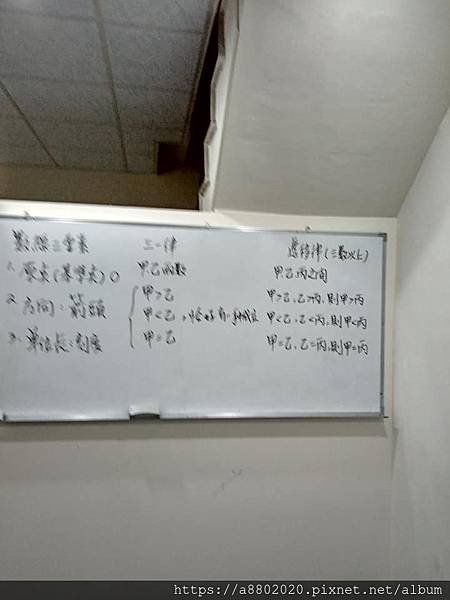 數線三要素
1. 原点(基準点) 0
2. 方向:箭頭
3. 單位長:刻度
三一律
甲.乙兩數
甲>乙
甲<乙,恰好有一種成立
甲=乙
遞移律(三數以上)
甲.乙.丙之間
甲>乙、乙>丙,則甲>丙
甲<乙、乙<丙,則甲<丙
甲=乙、乙=丙,則甲=丙
https://a8802020.pixnet.net/album